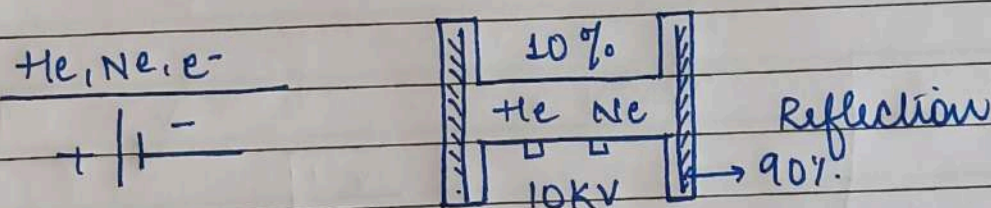 He, Ne, e-
+ -
10%
He Ne
10KV
Reflection
→ 90%.